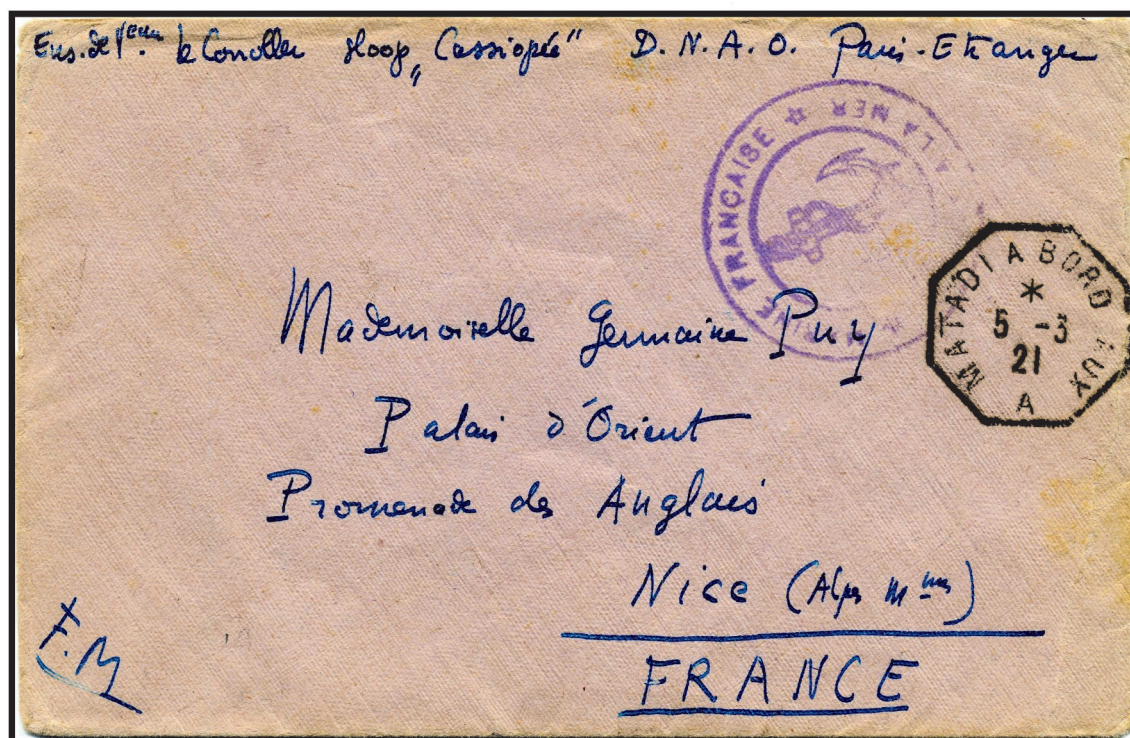 Ens. de 1ère le Conoller sloop „Cassiopée" D.N.A.O. Paris-Etranger
RINE FRANÇAISE ☆ A LA MER
MATADI A BORD AUX
*
5 -3
21
A
Mademoiselle Germaine Puy
Palais d'Orient
Promenade des Anglais
Nice (Alpes Mmes)
FRANCE
F.M